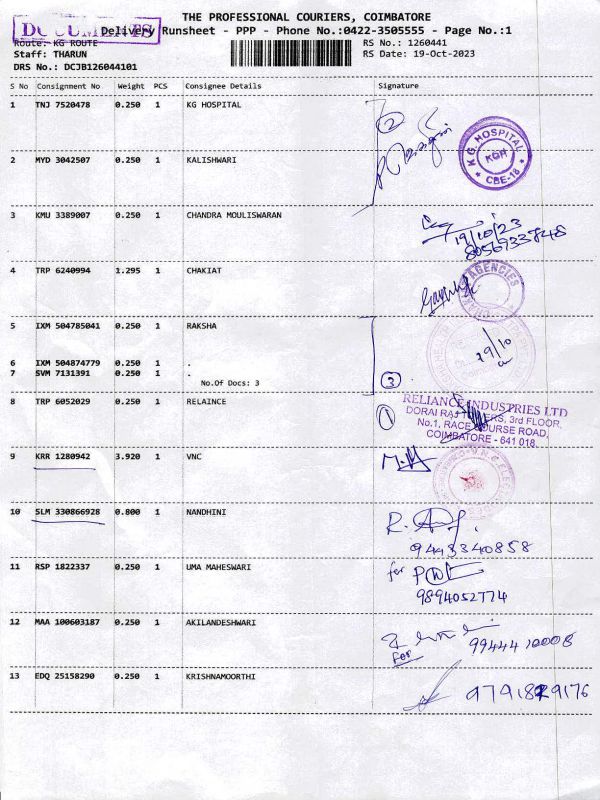 THE PROFESSIONAL COURIERS, COIMBATORE
DOCUMENTS
Delivery Runsheet - PPP - Phone No.:0422-3505555 - Page No.:1
Route: KG ROUTE
RS No.: 1260441
Staff: THARUN
RS Date: 19-Oct-2023
DRS No.: DCJB126044101
S No Consignment No Weight PCS Consignee Details Signature
1 TNJ 7520478 0.250 1 KG HOSPITAL
2
K.G. HOSPITAL
KGH
CBE-18
2 MYD 3042507 0.250 1 KALISHWARI
3 KMU 3389007 0.250 1 CHANDRA MOULISWARAN
19/10/23
8056933748
4 TRP 6240994 1.295 1 CHAKIAT
AGENCIES
5 IXM 504785041 0.250 1 RAKSHA
19/10
6 IXM 504874779 0.250 1 .
7 SVM 7131391 0.250 1 .
No.Of Docs: 3
3
8 TRP 6052029 0.250 1 RELAINCE
1
RELIANCE INDUSTRIES LTD
DORAI RAJ TOWERS, 3rd FLOOR,
No.1, RACE COURSE ROAD,
COIMBATORE - 641 018.
9 KRR 1280942 3.920 1 VNC
10 SLM 330866928 0.800 1 NANDHINI
9443340858
11 RSP 1822337 0.250 1 UMA MAHESWARI
for
9894052774
12 MAA 100603187 0.250 1 AKILANDESHWARI
for
9944410008
13 EDQ 25158290 0.250 1 KRISHNAMOORTHI